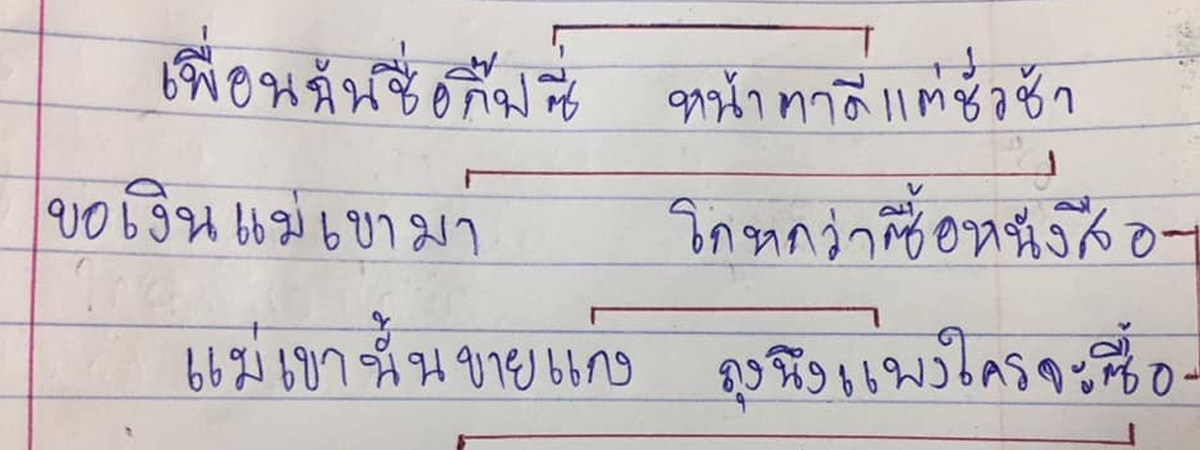 เพื่อนฉันชื่อกิ๊ฟซี่ หน้าตาดีแต่ชั่วช้า
ขอเงินแม่เขามา โกหกว่าซื้อหนังสือ
แม่เขานั้นขายแกง ถุงนึงแพงใครจะซื้อ